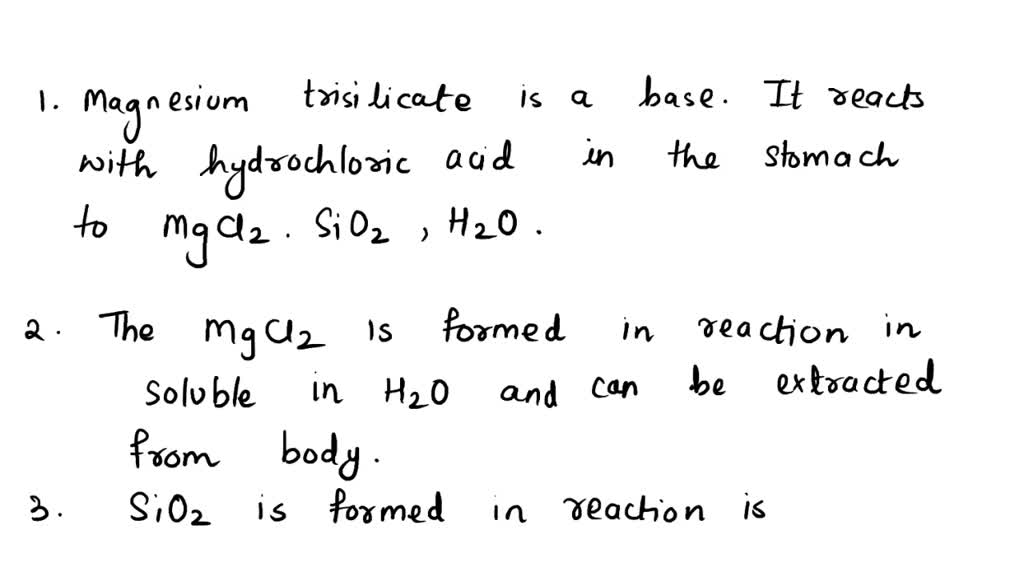 1. Magnesium trisilicate is a base. It reacts
with hydrochloric acid in the stomach
to MgCl2. SiO2, H2O.
2. The MgCl2 is formed in reaction in
soluble in H2O and can be extracted
from body.
3. SiO2 is formed in reaction is